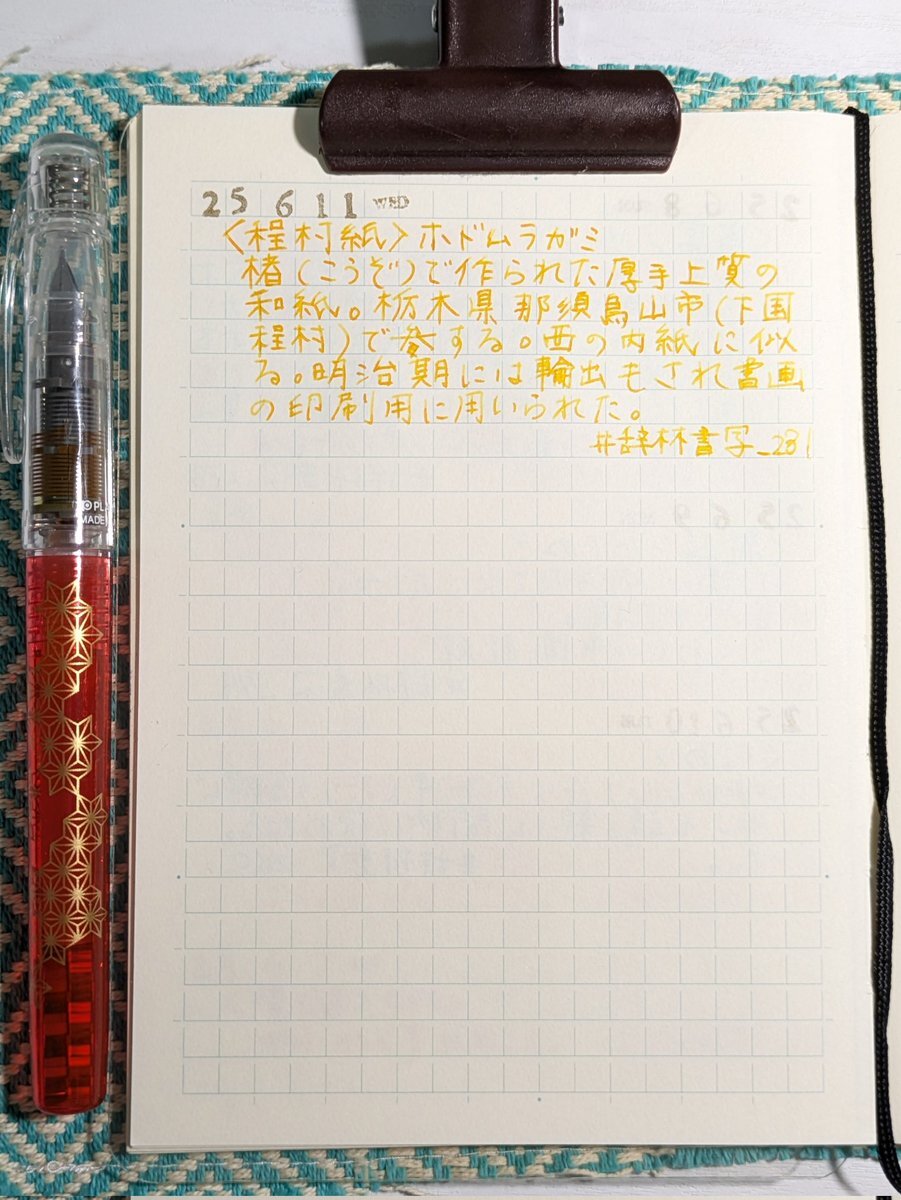 25 6 11 WED
〈程村紙〉ホドムラガミ
楮(こうぞ)で作られた厚手上質の
和紙。栃木県那須烏山市(下国
程村)で産する。西の内紙に似
る。明治期には輸出もされ書画
の印刷用に用いられた。
#辞林書写_281
PL
MADE